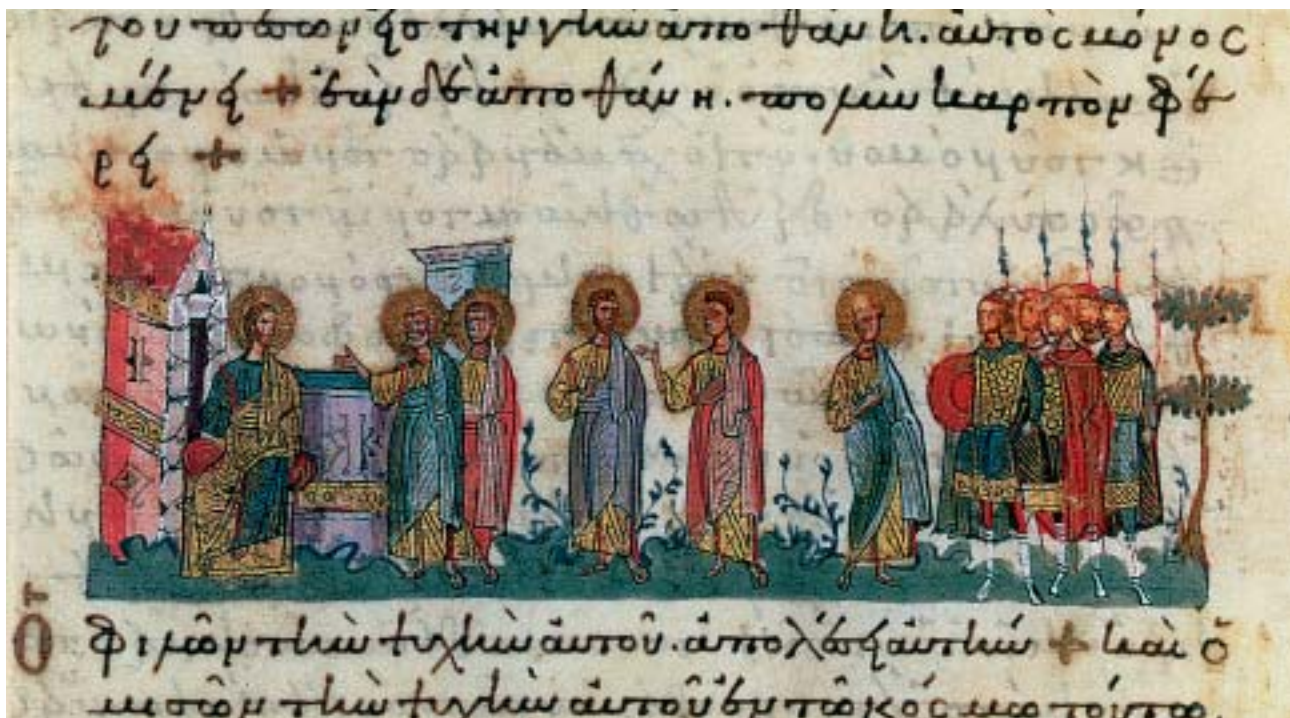 του πεσὼν εἰς τὴν γῆν ἀποθάνη. αὐτὸς μόνος
μένει + ἐὰν δὲ ἀποθάνη. πολὺν καρπὸν φέ
ρει +
Ὁ φιλῶν τὴν ψυχὴν αὐτοῦ. ἀπολέσει αὐτήν + καὶ ὁ
μισῶν τὴν ψυχὴν αὐτοῦ ἐν τῶ κόσμω τούτω